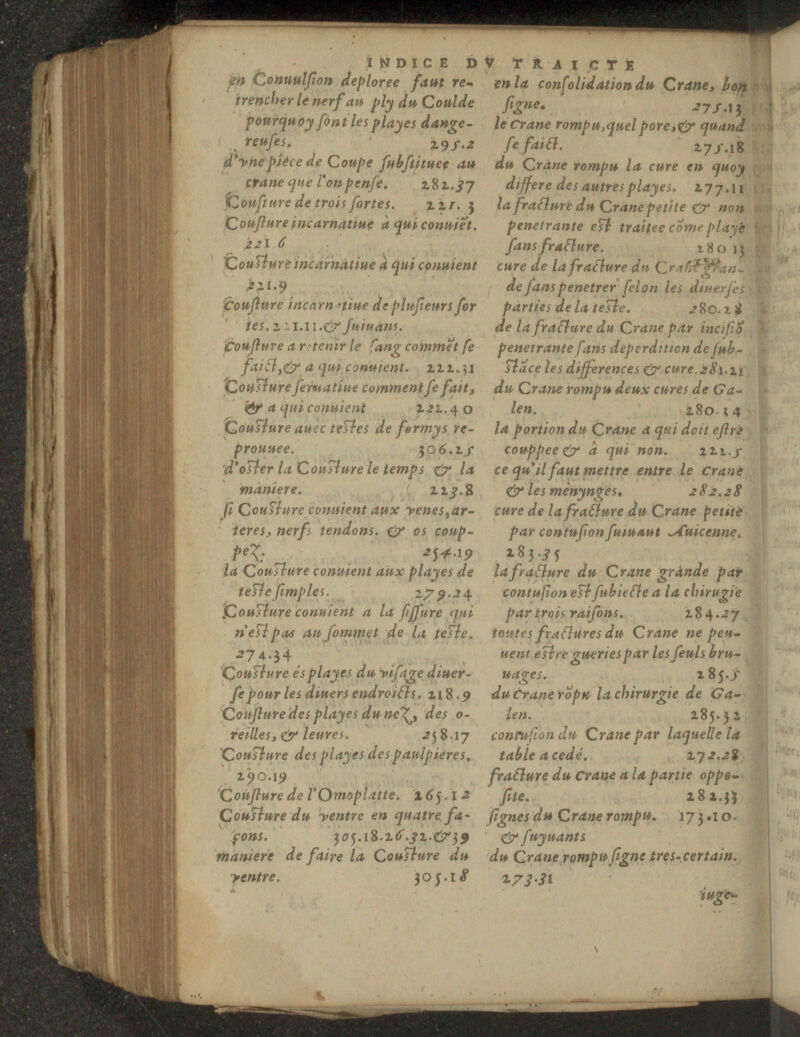 INDICE DV TRAICTE
en Conuulſion deploree faut re-
trencher le nerf au ply du Coulde
pourquoy ſont les playes dange-
reuſes. 295.2
d'vne piece de Coupe ſubſtituee au
crane que l'on penſe. 282.37
Couſture de trois ſortes. 221. 3
Couſture incarnatiue à qui conuiẽt.
221 6
Couſture incarnatiue à qui conuient
221.9
Couſture incarnatiue de pluſieurs ſor
tes. 221.11.& ſuiuans.
Couſture a retenir le ſang commẽt ſe
faict,& a qui conuient. 222.31
Couſture ſeruatiue comment ſe fait,
& a qui conuient 222.40
Couſture auec teſtes de formys re-
prouuee. 306.25
d'oſter la Couſture le temps & la
maniere. 223.8
ſi Couſture conuient aux venes,ar-
teres, nerfs tendons. & os coup-
pez. 254.19
la Couſture conuient aux playes de
teſte ſimples. 279.24
Couſture conuient a la fiſſure qui
n'eſt pas au ſommet de la teſte.
274.34
Couſture és playes du viſage diuer-
ſe pour les diuers endroicts. 218.9
Couſture des playes du nez, des o-
reilles, & leures. 258.17
Couſture des playes des paulpieres.
290.19
Couſture de l'Omoplatte. 265.12
Couſture du ventre en quatre fa-
çons. 305.18.26.32.&39
maniere de faire la Couſture du
ventre. 305.18
en la conſolidation du Crane, bon
ſigne. 275.13
le Crane rompu,quel pore,& quand
ſe faict. 275.18
du Crane rompu la cure en quoy
differe des autres playes. 277.11
la fracture du Crane petite & non
penetrante eſt traitee cõme playe
ſans fracture. 280 13
cure de la fracture du Crane
de ſans penetrer ſelon les diuerſes
parties de la teſte. 280.28
de la fracture du Crane par inciſiõ
penetrante ſans deperdition de ſub-
ſtãce les differences & cure. 281.21
du Crane rompu deux cures de Ga-
len. 280.34
la portion du Crane a qui doit eſtre
couppee & à qui non. 222.5
ce qu'il faut mettre entre le Crane
& les menynges. 282.28
cure de la fracture du Crane petite
par contuſion ſuiuaut Auicenne.
283.35
la fracture du Crane grande par
contuſion eſt ſubiecte a la chirugie
par trois raiſons. 284.27
toutes fractures du Crane ne peu-
uent eſtre gueries par les ſeuls bru-
uages. 285.5
du Crane rõpu la chirurgie de Ga-
len. 285.32
contuſion du Crane par laquelle la
table a cedé. 272.28
fracture du Crane a la partie oppo-
ſite. 282.33
ſignes du Crane rompu. 173.10.
& ſuyuants
du Crane rompu ſigne tres-certain.
273.31
iuge-